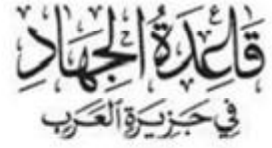 قَاعِدَةُ الجِهَادِ
فِي جَزِيرَةِ ٱلعَرَبِ